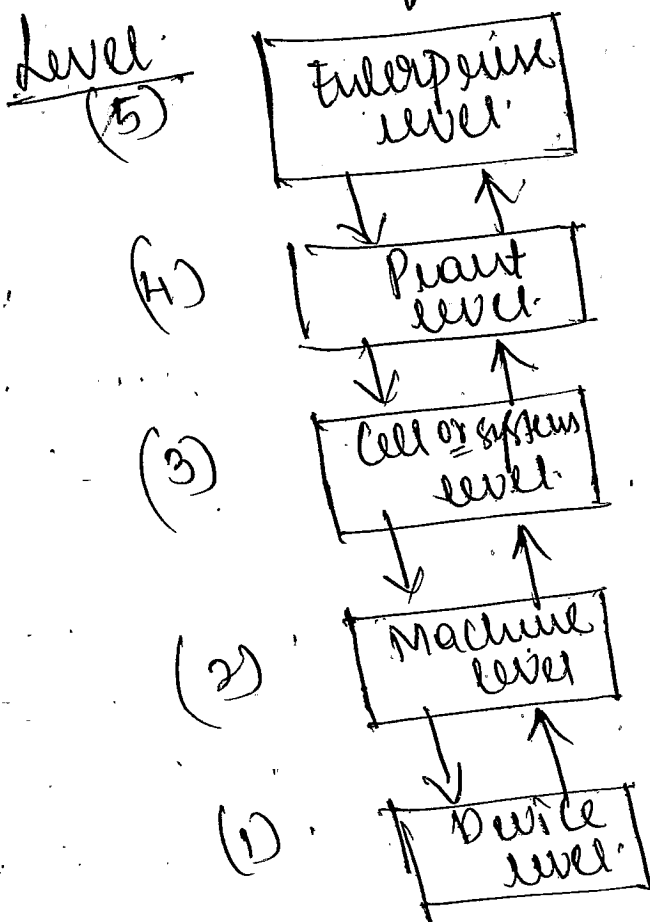 Level.
(5)
Enterprise
level.
(4)
Plant
level.
(3)
Cell or systems
level.
(2)
Machine
level
(1)
Device
level.